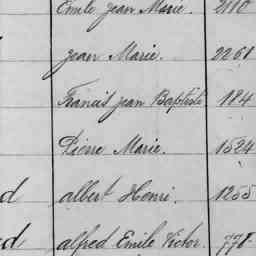 Emile Jean Marie. 2110
Jean Marie. 2261
Francis Jean Baptiste 184
Pierre Marie. 1524
d albert Henri. 1255
d alfred Emile Victor. 778